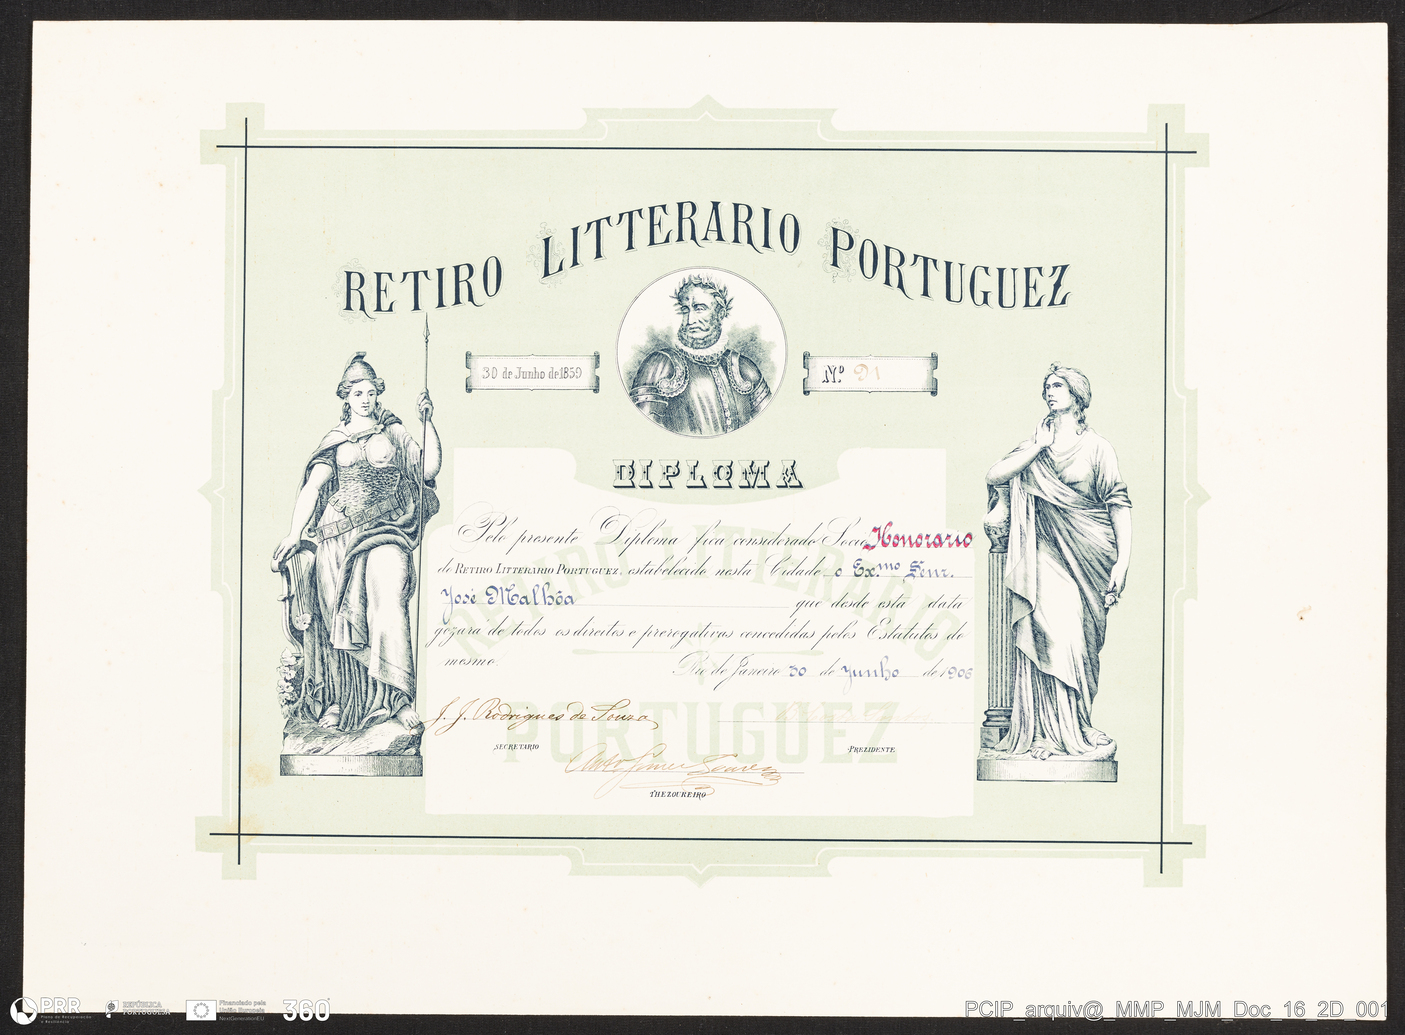 RETIRO LITTERARIO PORTUGUEZ
30 de Junho de 1859
Nº 91
DIPLOMA
Pelo presente Diploma fica considerado Socio Honorario
do RETIRO LITTERARIO PORTUGUEZ, estabelecido nesta Cidade, o Ex.mo Senr.
José Malhôa que desde esta data
gozará de todos os direitos e prerogativas concedidas pelos Estatutos do
mesmo.
Rio de Janeiro 30 de Junho de 1906
J. J. Rodrigues de Souza
SECRETARIO
PREZIDENTE
THEZOUREIRO
RETIRO LITTERARIO
PORTUGUEZ
PRR
Plano de Recuperação
e Resiliência
REPÚBLICA
PORTUGUESA
Financiado pela
União Europeia
NextGenerationEU
360°
PCIP_arquiv@_MMP_MJM_Doc_16_2D_001